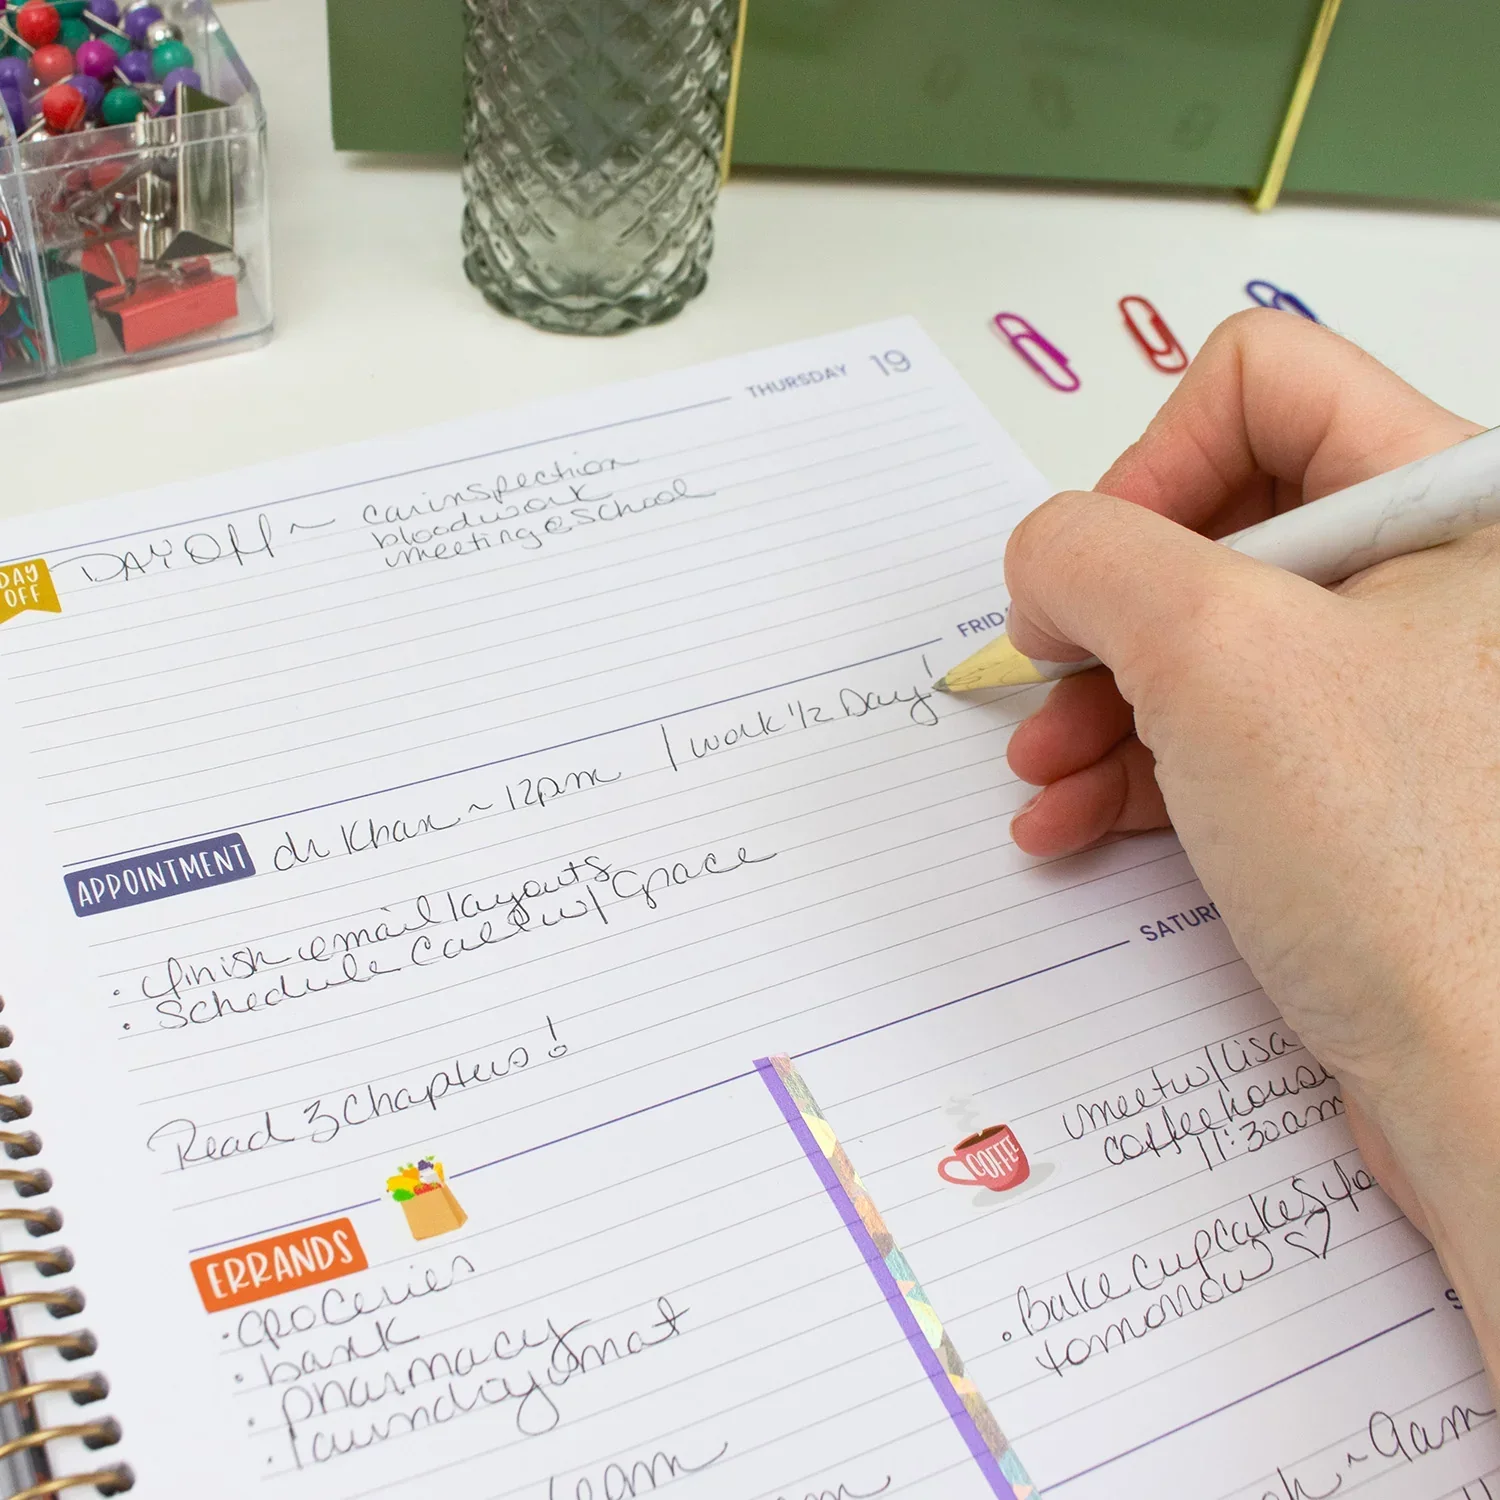 THURSDAY 19
DAY OFF
DAY Off ~ car inspection
bloodwork
meeting @ school
FRID
APPOINTMENT
dr Khan ~ 12pm / work 1/2 Day!
· finish email layouts
· schedule call w/ Grace
Read 3 Chapters!
SATUR
ERRANDS
· groceries
· bank
· pharmacy
· laundry mat
COFFEE
meet w/ Lisa
coffeehous
11:30am
· Bake cupcakes fo
tomorrow ♡
S
~ 9am